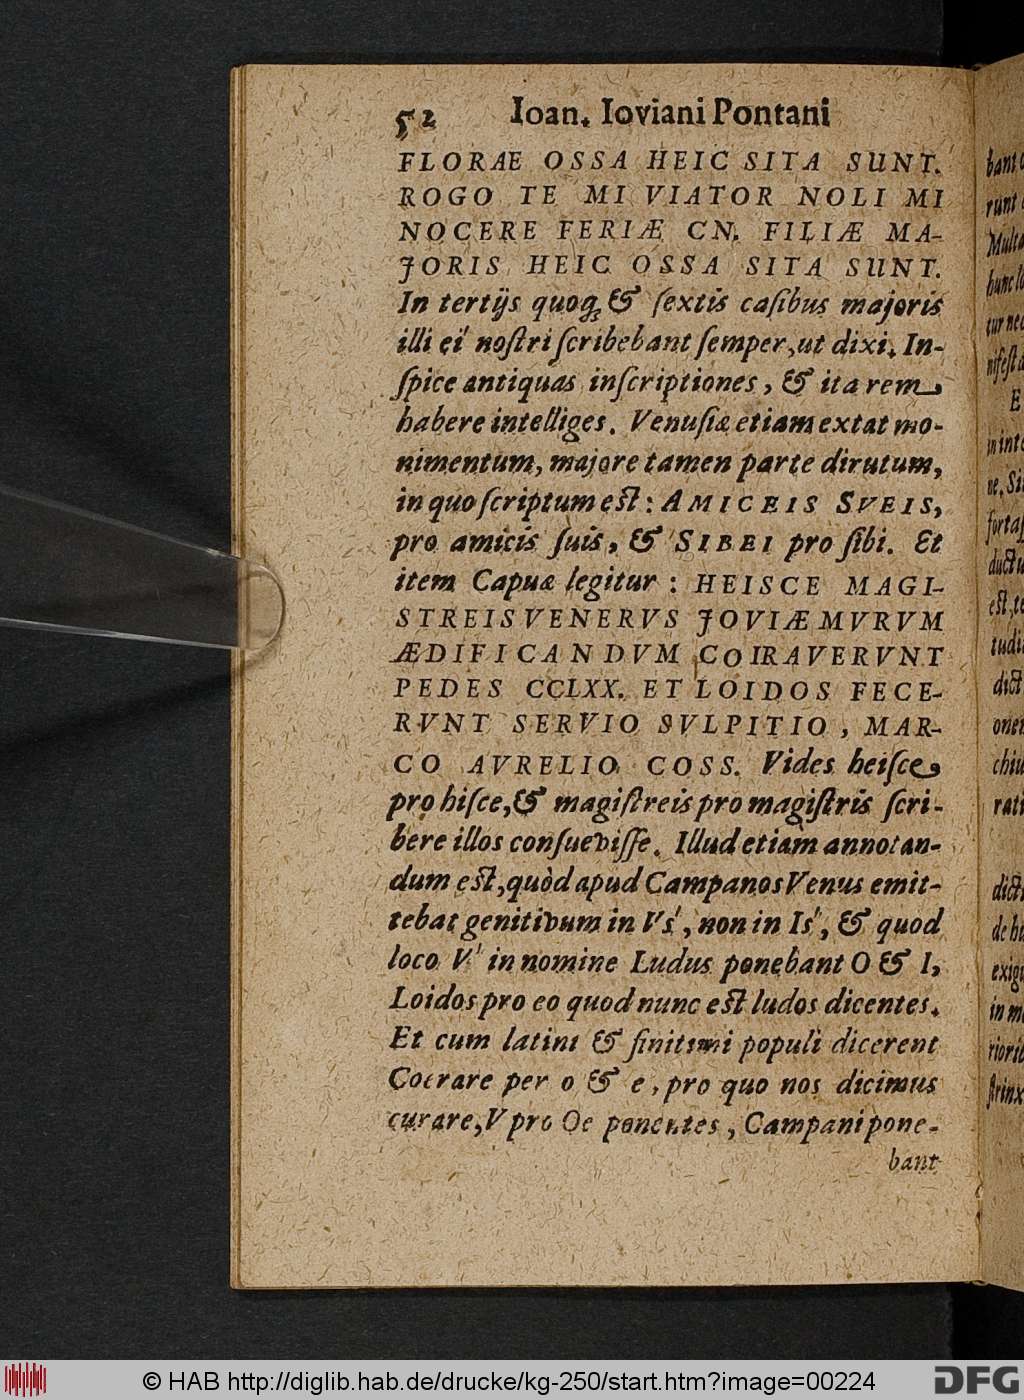 52 Ioan. Ioviani Pontani
FLORAE OSSA HEIC SITA SUNT.
ROGO TE MI VIATOR NOLI MI
NOCERE FERIÆ CN. FILIÆ MA-
JORIS HEIC OSSA SITA SUNT.
In tertijs quoqȝ & ſextis caſibus majoris
illi ei' noſtri ſcribebant ſemper, ut dixi. In-
ſpice antiquas inſcriptiones, & ita rem
habere intelliges. Venuſiæ etiam extat mo-
nimentum, majore tamen parte dirutum,
in quo ſcriptum eſt: AMICEIS SVEIS,
pro amicis ſuis, & SIBEI pro ſibi. Et
item Capuæ legitur: HEISCE MAGI-
STREIS VENERVS JOVIÆ MVRVM
ÆDIFICANDVM COIRAVERVNT
PEDES CCLXX. ET LOIDOS FECE-
RVNT SERVIO SVLPITIO, MAR-
CO AVRELIO COSS. Vides heiſce
pro hiſce, & magiſtreis pro magiſtris ſcri-
bere illos conſueviſſe. Illud etiam annotan-
dum eſt, quòd apud Campanos Venus emit-
tebat genitivum in Vs', non in Is', & quod
loco V' in nomine Ludus ponebant O & I,
Loidos pro eo quod nunc eſt ludos dicentes.
Et cum latini & finitimi populi dicerent
Coerare per o & e, pro quo nos dicimus
curare, V pro Oe ponentes, Campani pone-
bant
bant
runt
Multa
hunc lo
tur nec
nifeſt
E
in int
ne. Si
fortaſ
ductu
eſt, te
tudi
dict
oner
chiu
rati
dict
de hu
exig
in m
riorib
ſtrinx
© HAB http://diglib.hab.de/drucke/kg-250/start.htm?image=00224
DFG